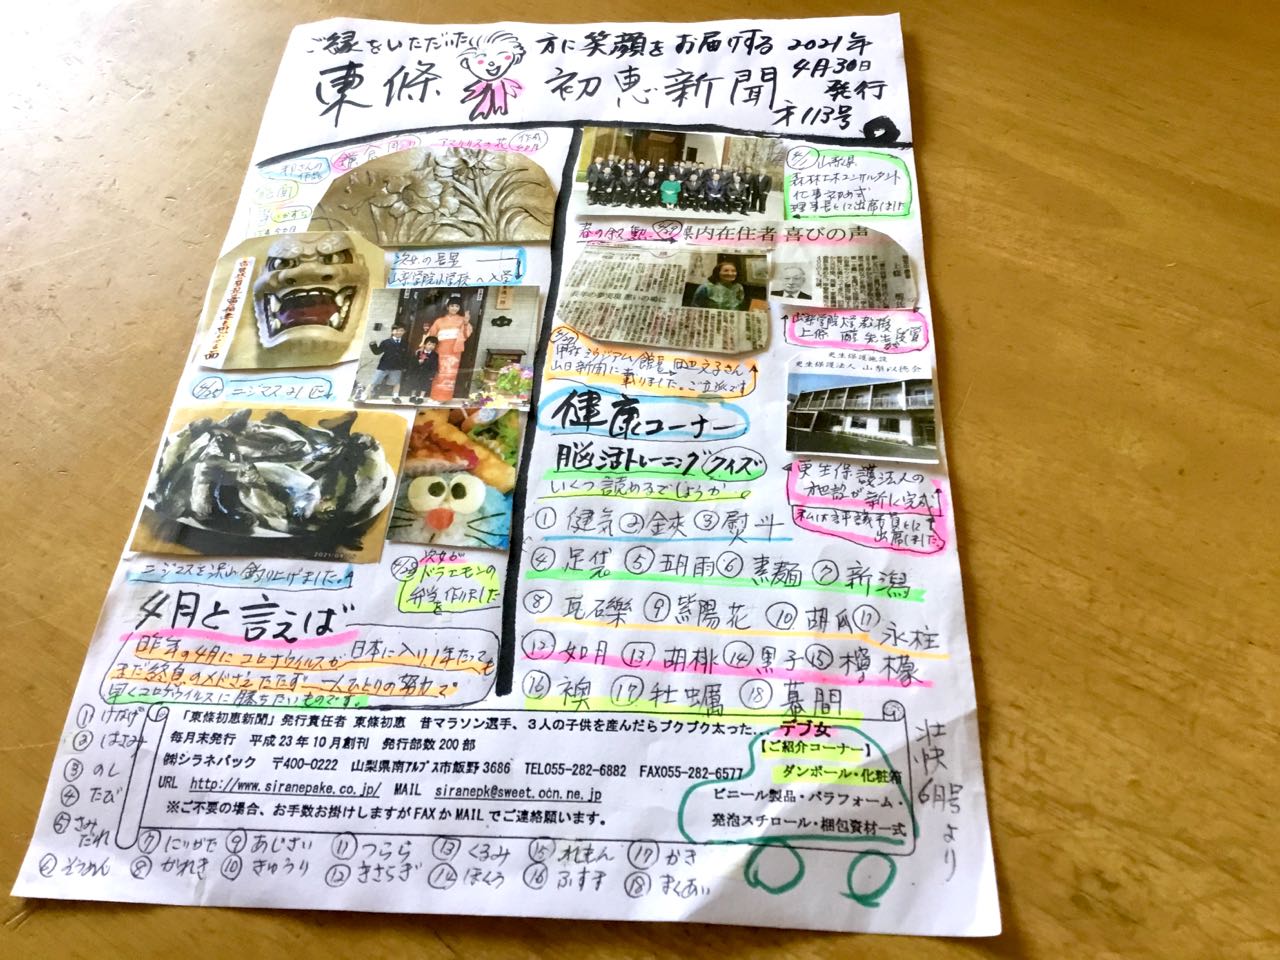 ご縁をいただいた方に笑顔をお届けする
東條初恵新聞
2021年
4月30日
発行
才113号
鎌倉周り
アマリリスの花
作成
絵画
次女の長男
山梨学院小学校へ入学
4/25 ニジマス21匹
2021/04
ニジマスを沢山釣り上げました。
次女が
ドラエモンの
弁当を作りました
4月と言えば
昨年の4月にコロナウイルスが日本に入り1年たっても
まだ終息のメドさえたたず一人ひとりの努力で
早くコロナウイルスに勝ちたいものです。
4/1 山梨県
森林土木コンサルタント
仕事初め式
理事長として出席しました
春の叙勲 4/29 県内在住者 喜びの声
山梨学院大学教授
田辺文子さん
山日新聞に載りました。ご立派です
更生保護施設
更生保護法人 山梨以徳会
更生保護法人の
施設が新に完成
私は評議員として
出席しました
健康コーナー
脳活トレーニングクイズ
いくつ読めるでしょうか。
①健気②金夾③熨斗
④足袋⑤五月雨⑥素麺⑦新潟
⑧瓦石礫⑨紫陽花⑩胡瓜⑪氷柱
⑫如月⑬胡桃⑭黒子⑮檸檬
⑯襖⑰牡蠣⑱幕間
「東條初恵新聞」発行責任者 東條初恵 昔マラソン選手、3人の子供を産んだらブクブク太った... デブ女
毎月末発行 平成23年10月創刊 発行部数200部
㈱シラネパック 〒400-0222 山梨県南ｱﾙﾌﾟｽ市飯野3686 TEL055-282-6882 FAX055-282-6577
URL http://www.siranepake.co.jp/ MAIL siranepk@sweet.ocn.ne.jp
※ご不要の場合、お手数お掛けしますがFAXかMAILでご連絡願います。
【ご紹介コーナー】
ダンボール・化粧箱
ビニール製品・パラフォーム・
発泡スチロール・梱包資材一式
壮快6月号より
①けなげ
②はさみ
③のし
④たび
⑤さみだれ
⑥そうめん
⑦にいがた
⑧がれき
⑨あじさい
⑩きゅうり
⑪つらら
⑫きさらぎ
⑬くるみ
⑭ほくろ
⑮れもん
⑯ふすま
⑰かき
⑱まくあい